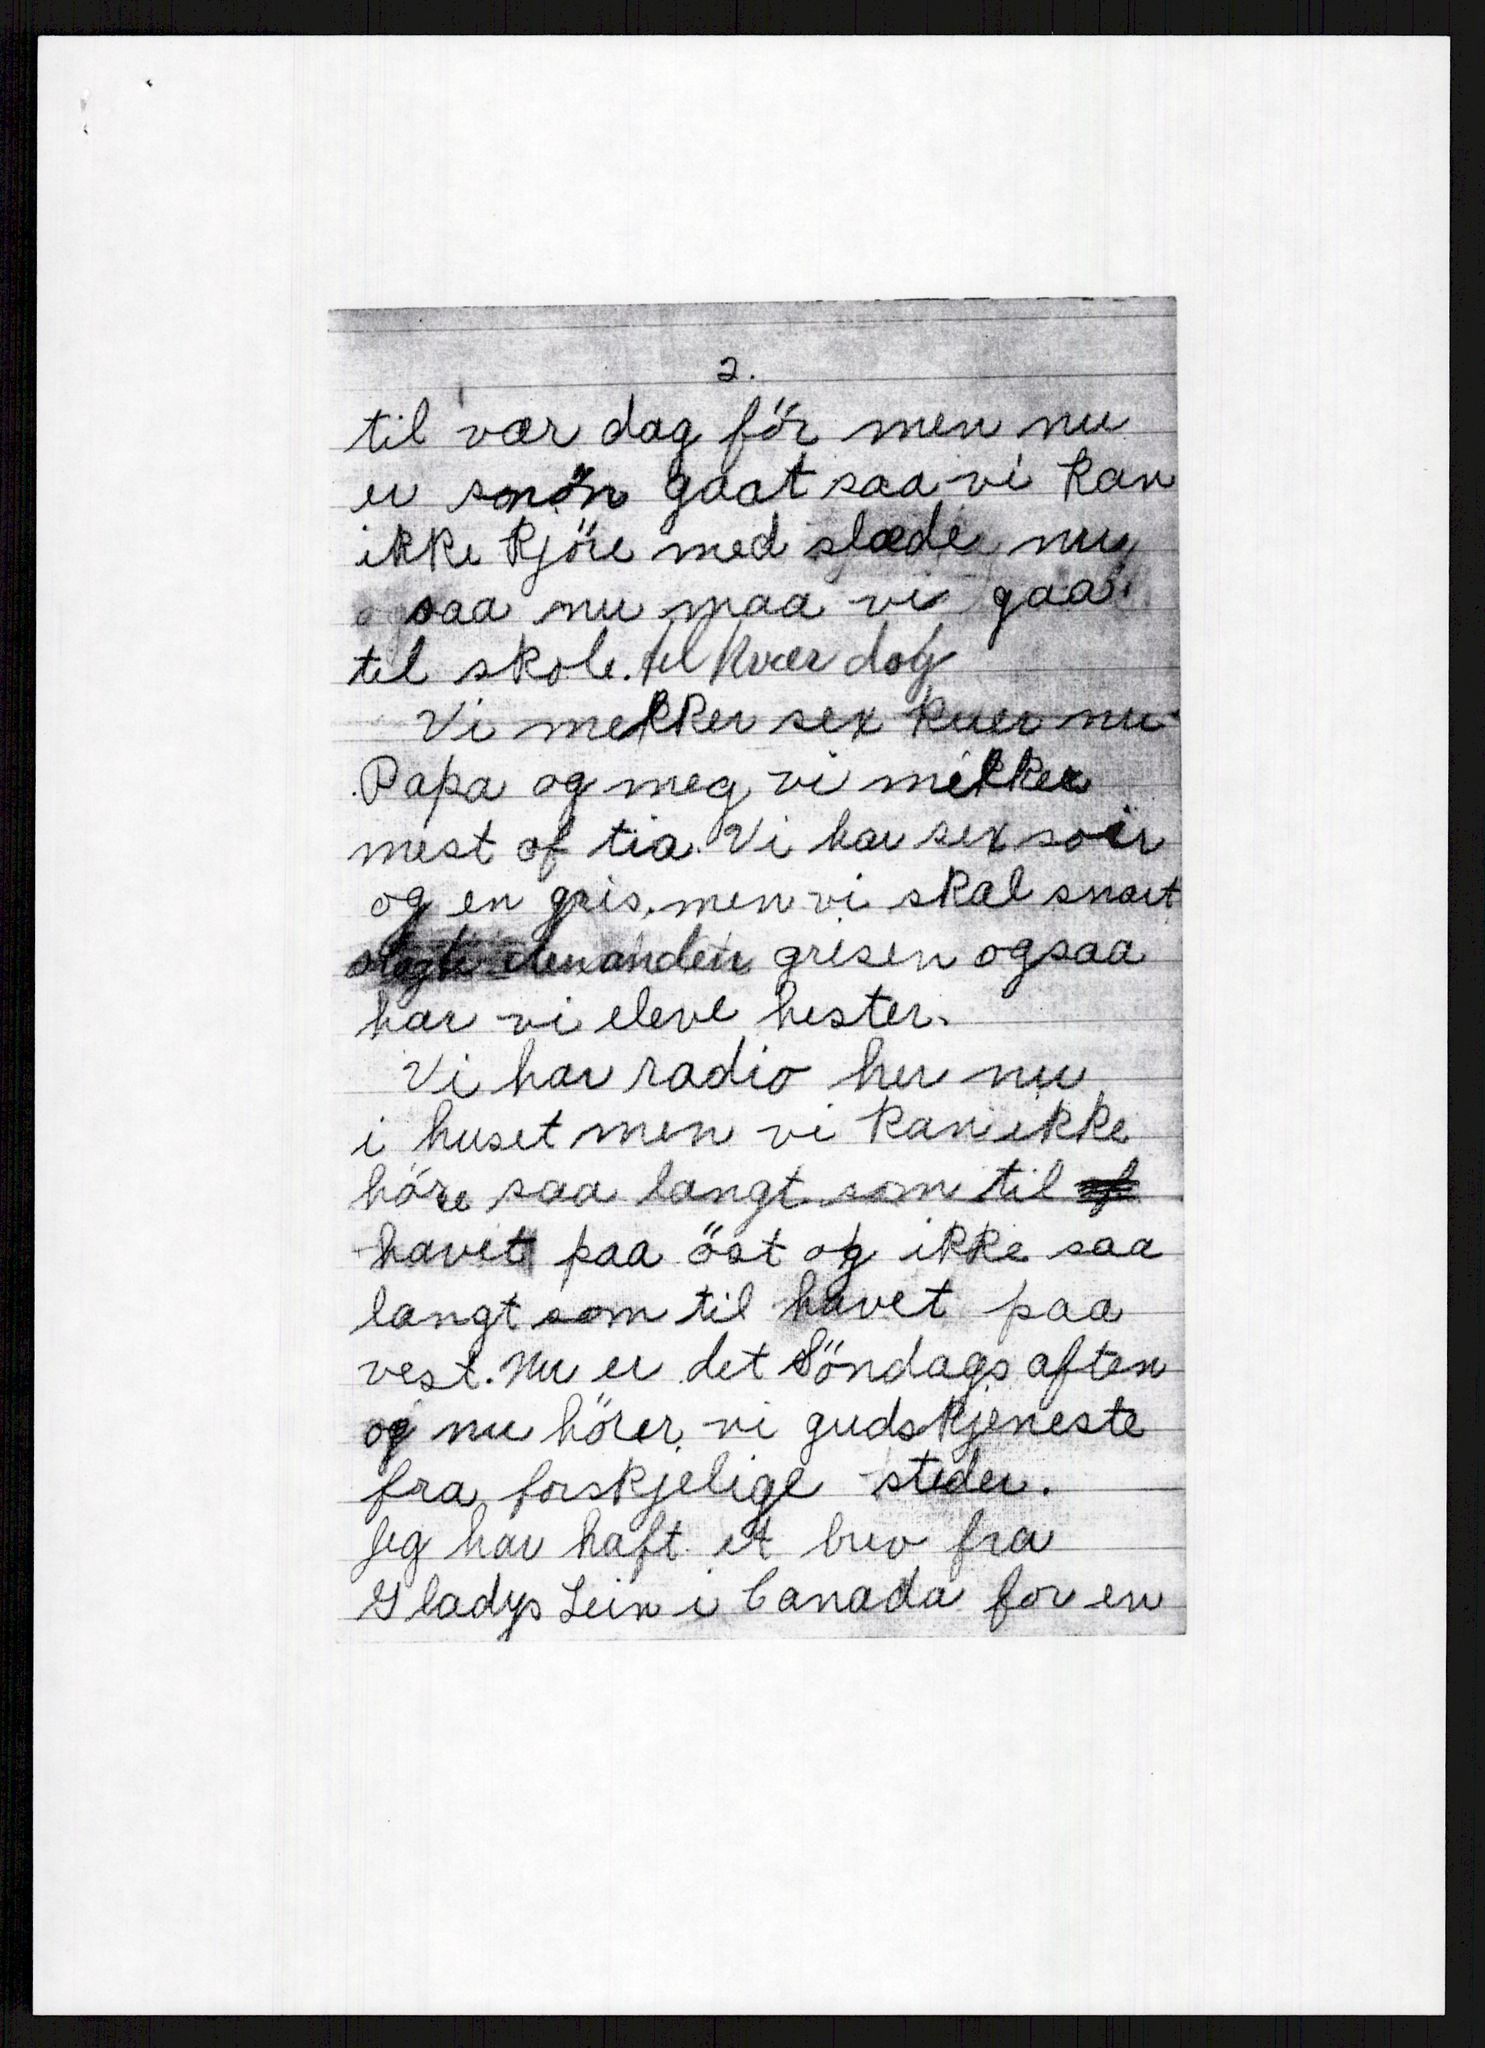 2.
til vær dag för men nu
er snön gaat saa vi kan
ikke kjöre med slæde nu
saa nu maa vi gaa
til skole. til kvær dag
Vi melker sex kuer nu
Papa og meg vi melker
mest af tia. Vi har sex soer
og en gris, men vi skal snart
slagte den anden grisen ogsaa
har vi eleve hester.
Vi har radio her nu
i huset men vi kan ikke
höre saa langt som til
havet paa öst og ikke saa
langt som til havet paa
vest. Nu er det Söndags aften
og nu hörer vi gudskjeneste
fra forskjelige steder.
Jeg har haft et brev fra
Gladys Lein i Canada for en